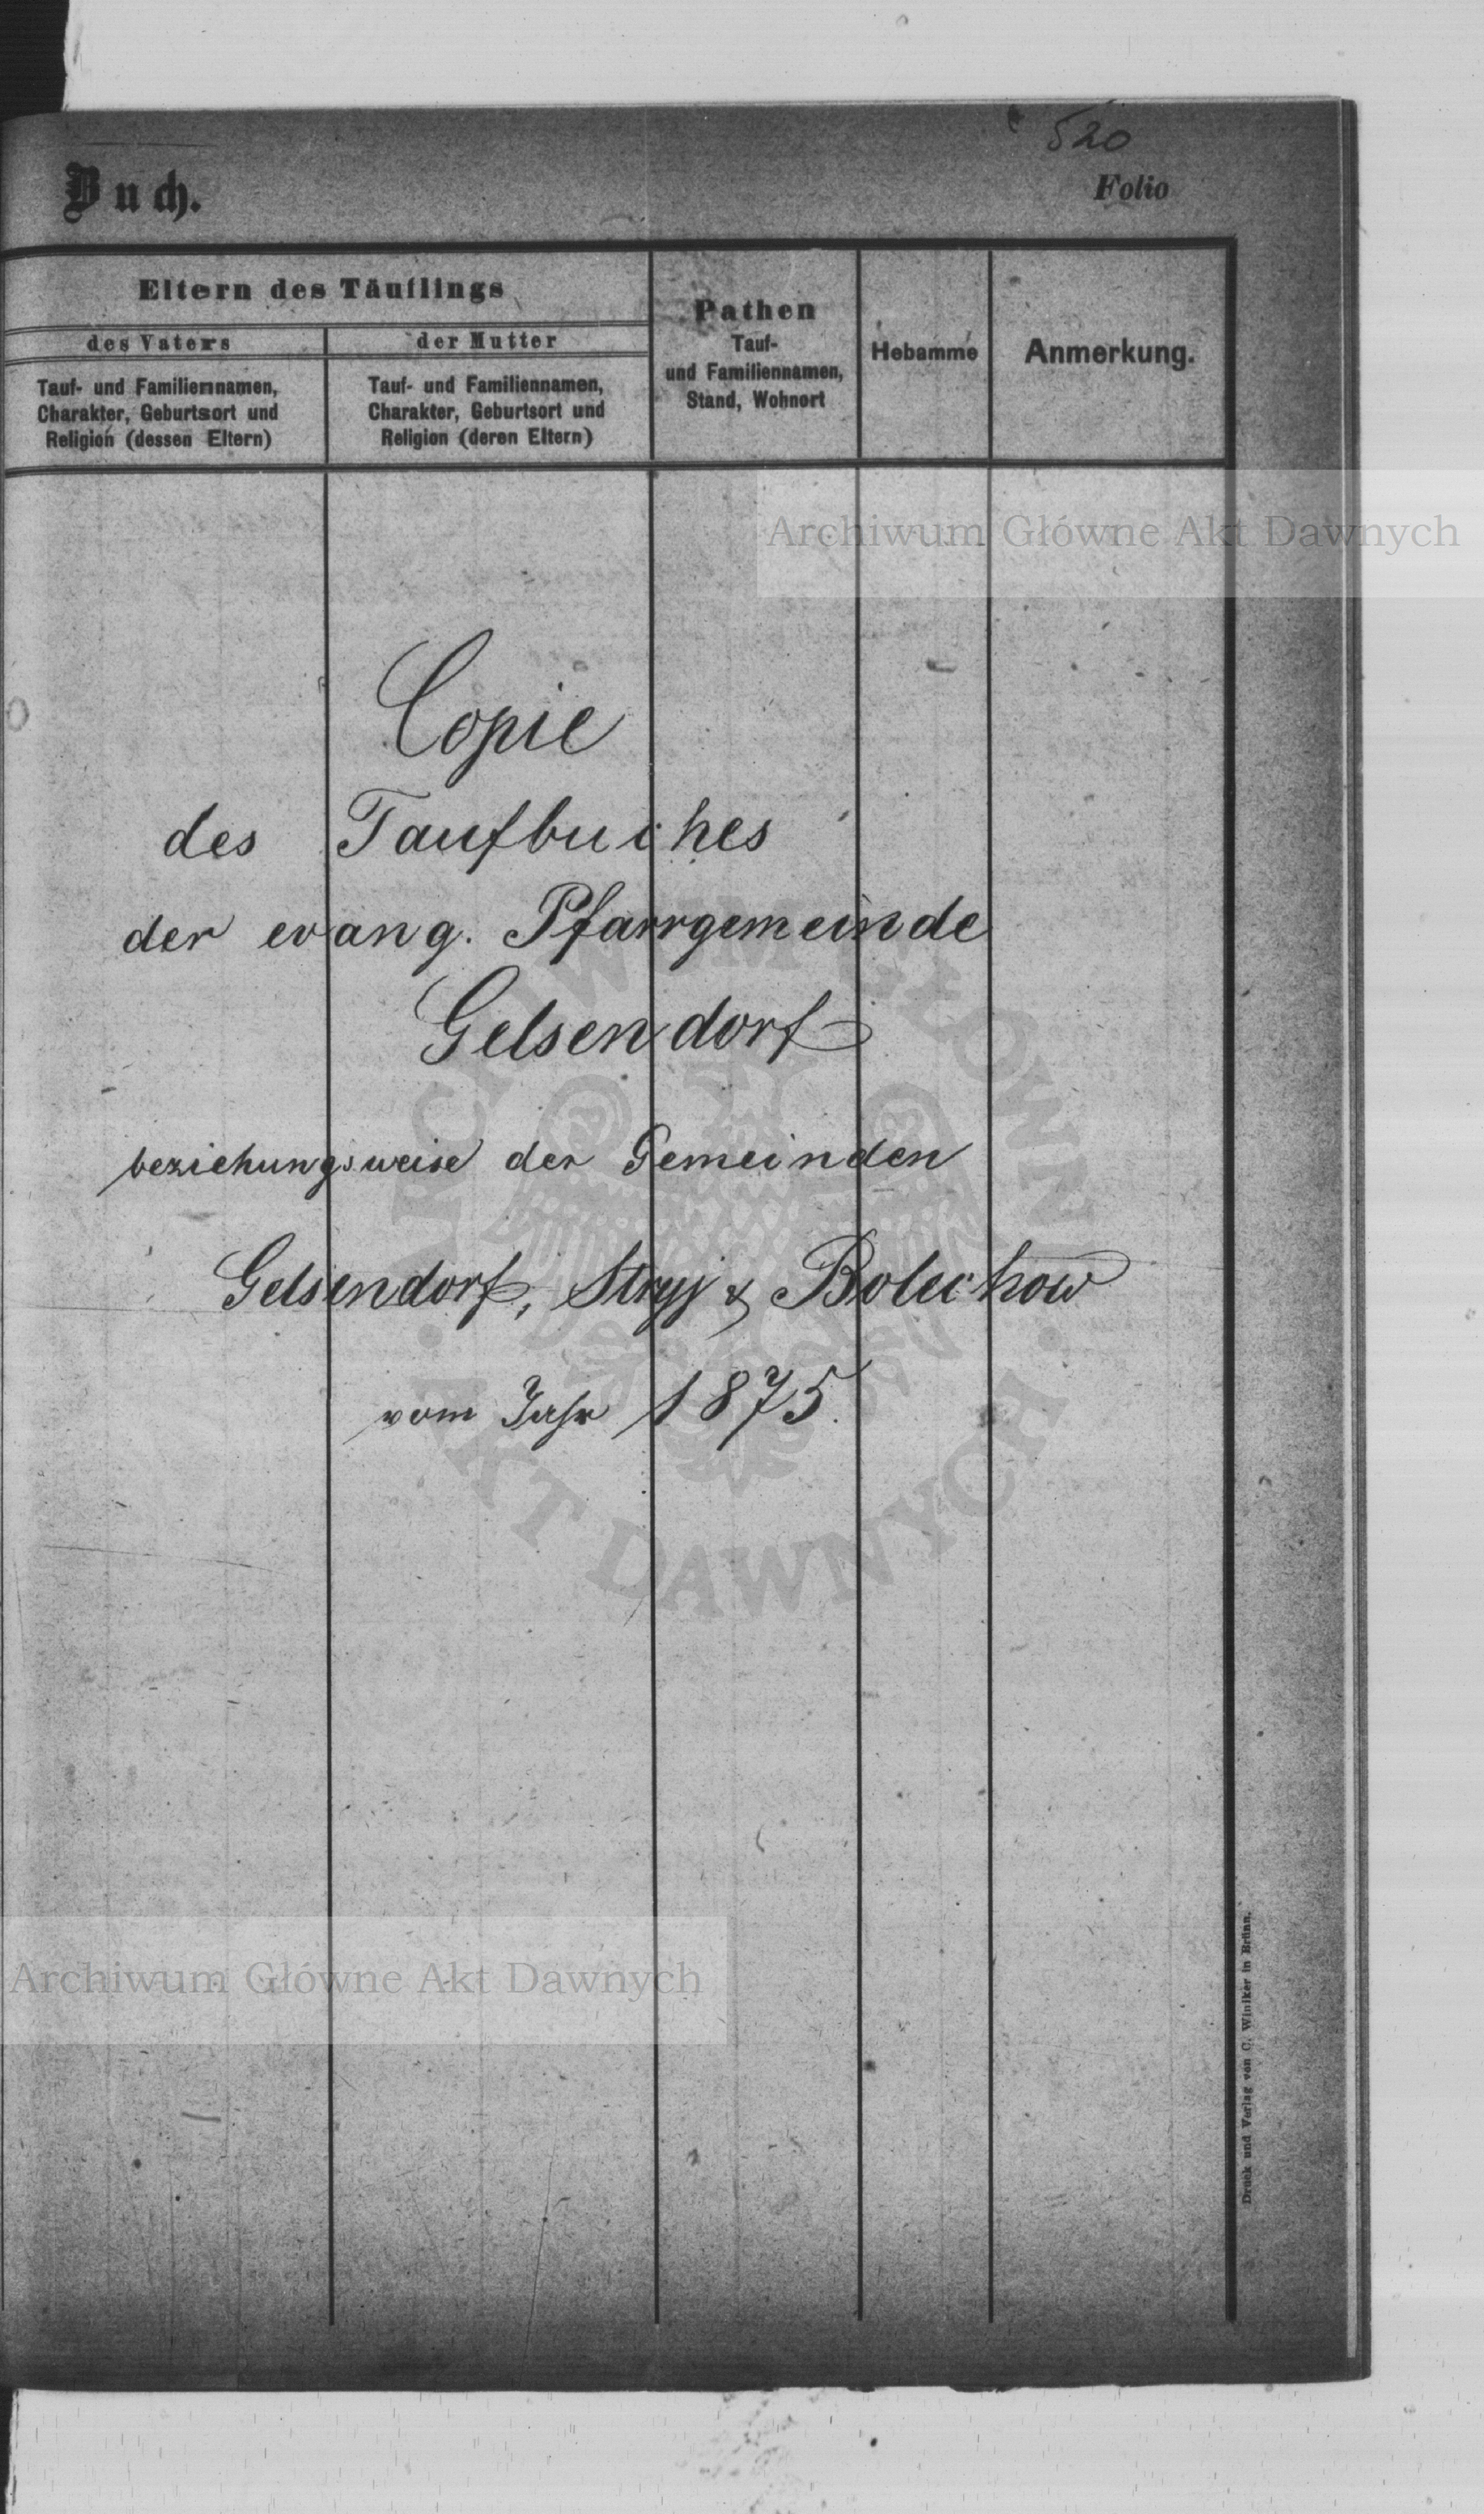 520
Buch.
Folio
Eltern des Täuflings
des Vaters
der Mutter
Tauf- und Familiennamen,
Charakter, Geburtsort und
Religion (dessen Eltern)
Tauf- und Familiennamen,
Charakter, Geburtsort und
Religion (deren Eltern)
Pathen
Tauf-
und Familiennamen,
Stand, Wohnort
Hebamme
Anmerkung.
Archiwum Główne Akt Dawnych
Copie
des Taufbuches
der evang. Pfarrgemeinde
Gelsendorf
beziehungsweise der Gemeinden
Gelsendorf, Stryj & Bolechow
vom Jahr 1875.
ARCHIWUM GŁÓWNE
AKT DAWNYCH
Archiwum Główne Akt Dawnych
Druck und Verlag von C. Winiker in Brünn.